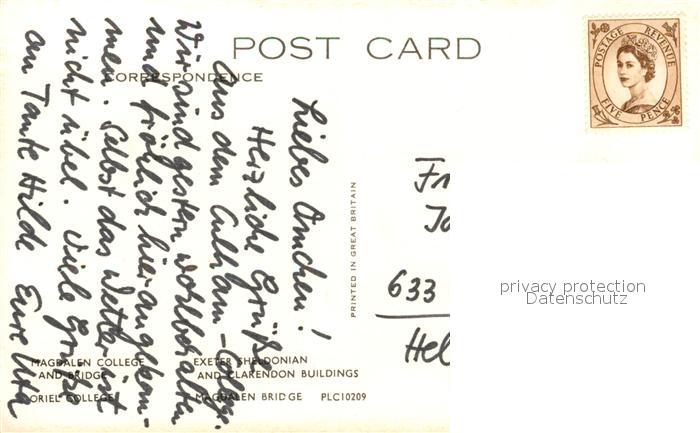 POST CARD
CORRESPONDENCE
POSTAGE REVENUE
FIVE PENCE
Liebes Omchen!
Herzliche Grüße
aus dem Culham-College.
Wir sind gestern wohlbehalten
und fröhlich hier angekom-
men. Selbst das Wetter ist
nicht übel. Viele Grüße
an Tante Hilde Eure Uta
PRINTED IN GREAT BRITAIN
633
Hel
privacy protection
Datenschutz
MAGDALEN COLLEGE
AND BRIDGE
ORIEL COLLEGE
EXETER SHELDONIAN
AND CLARENDON BUILDINGS
MAGDALEN BRIDGE PLC10209